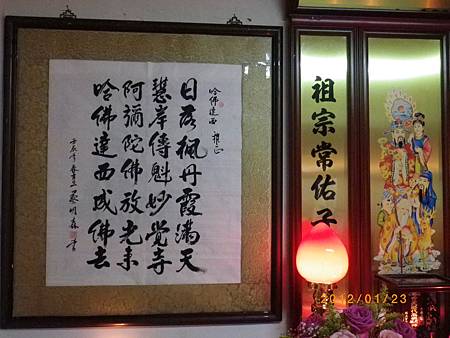 哈佛達西 雅正
日落楓丹霞滿天
慧岸傳魁妙覺寺
阿彌陀佛放光來
哈佛達西成佛去
壬辰年春節 蔡明森 書
祖宗常佑子
2012/01/23